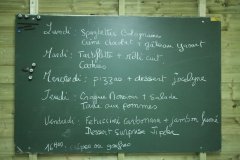 Lundi: Spaghettis Bolognaise
Crème chocolat + gâteau yaourt
Mardi: Tartiflette + rôti cuit
Cookies
Mercredi: pizzas + dessert
Jeudi: Croque Monsieur + Salade
Tarte aux pommes
Vendredi: Fettuccini carbonara + jambon fumé
Dessert Surprise
16h00: crêpes ou gaufres